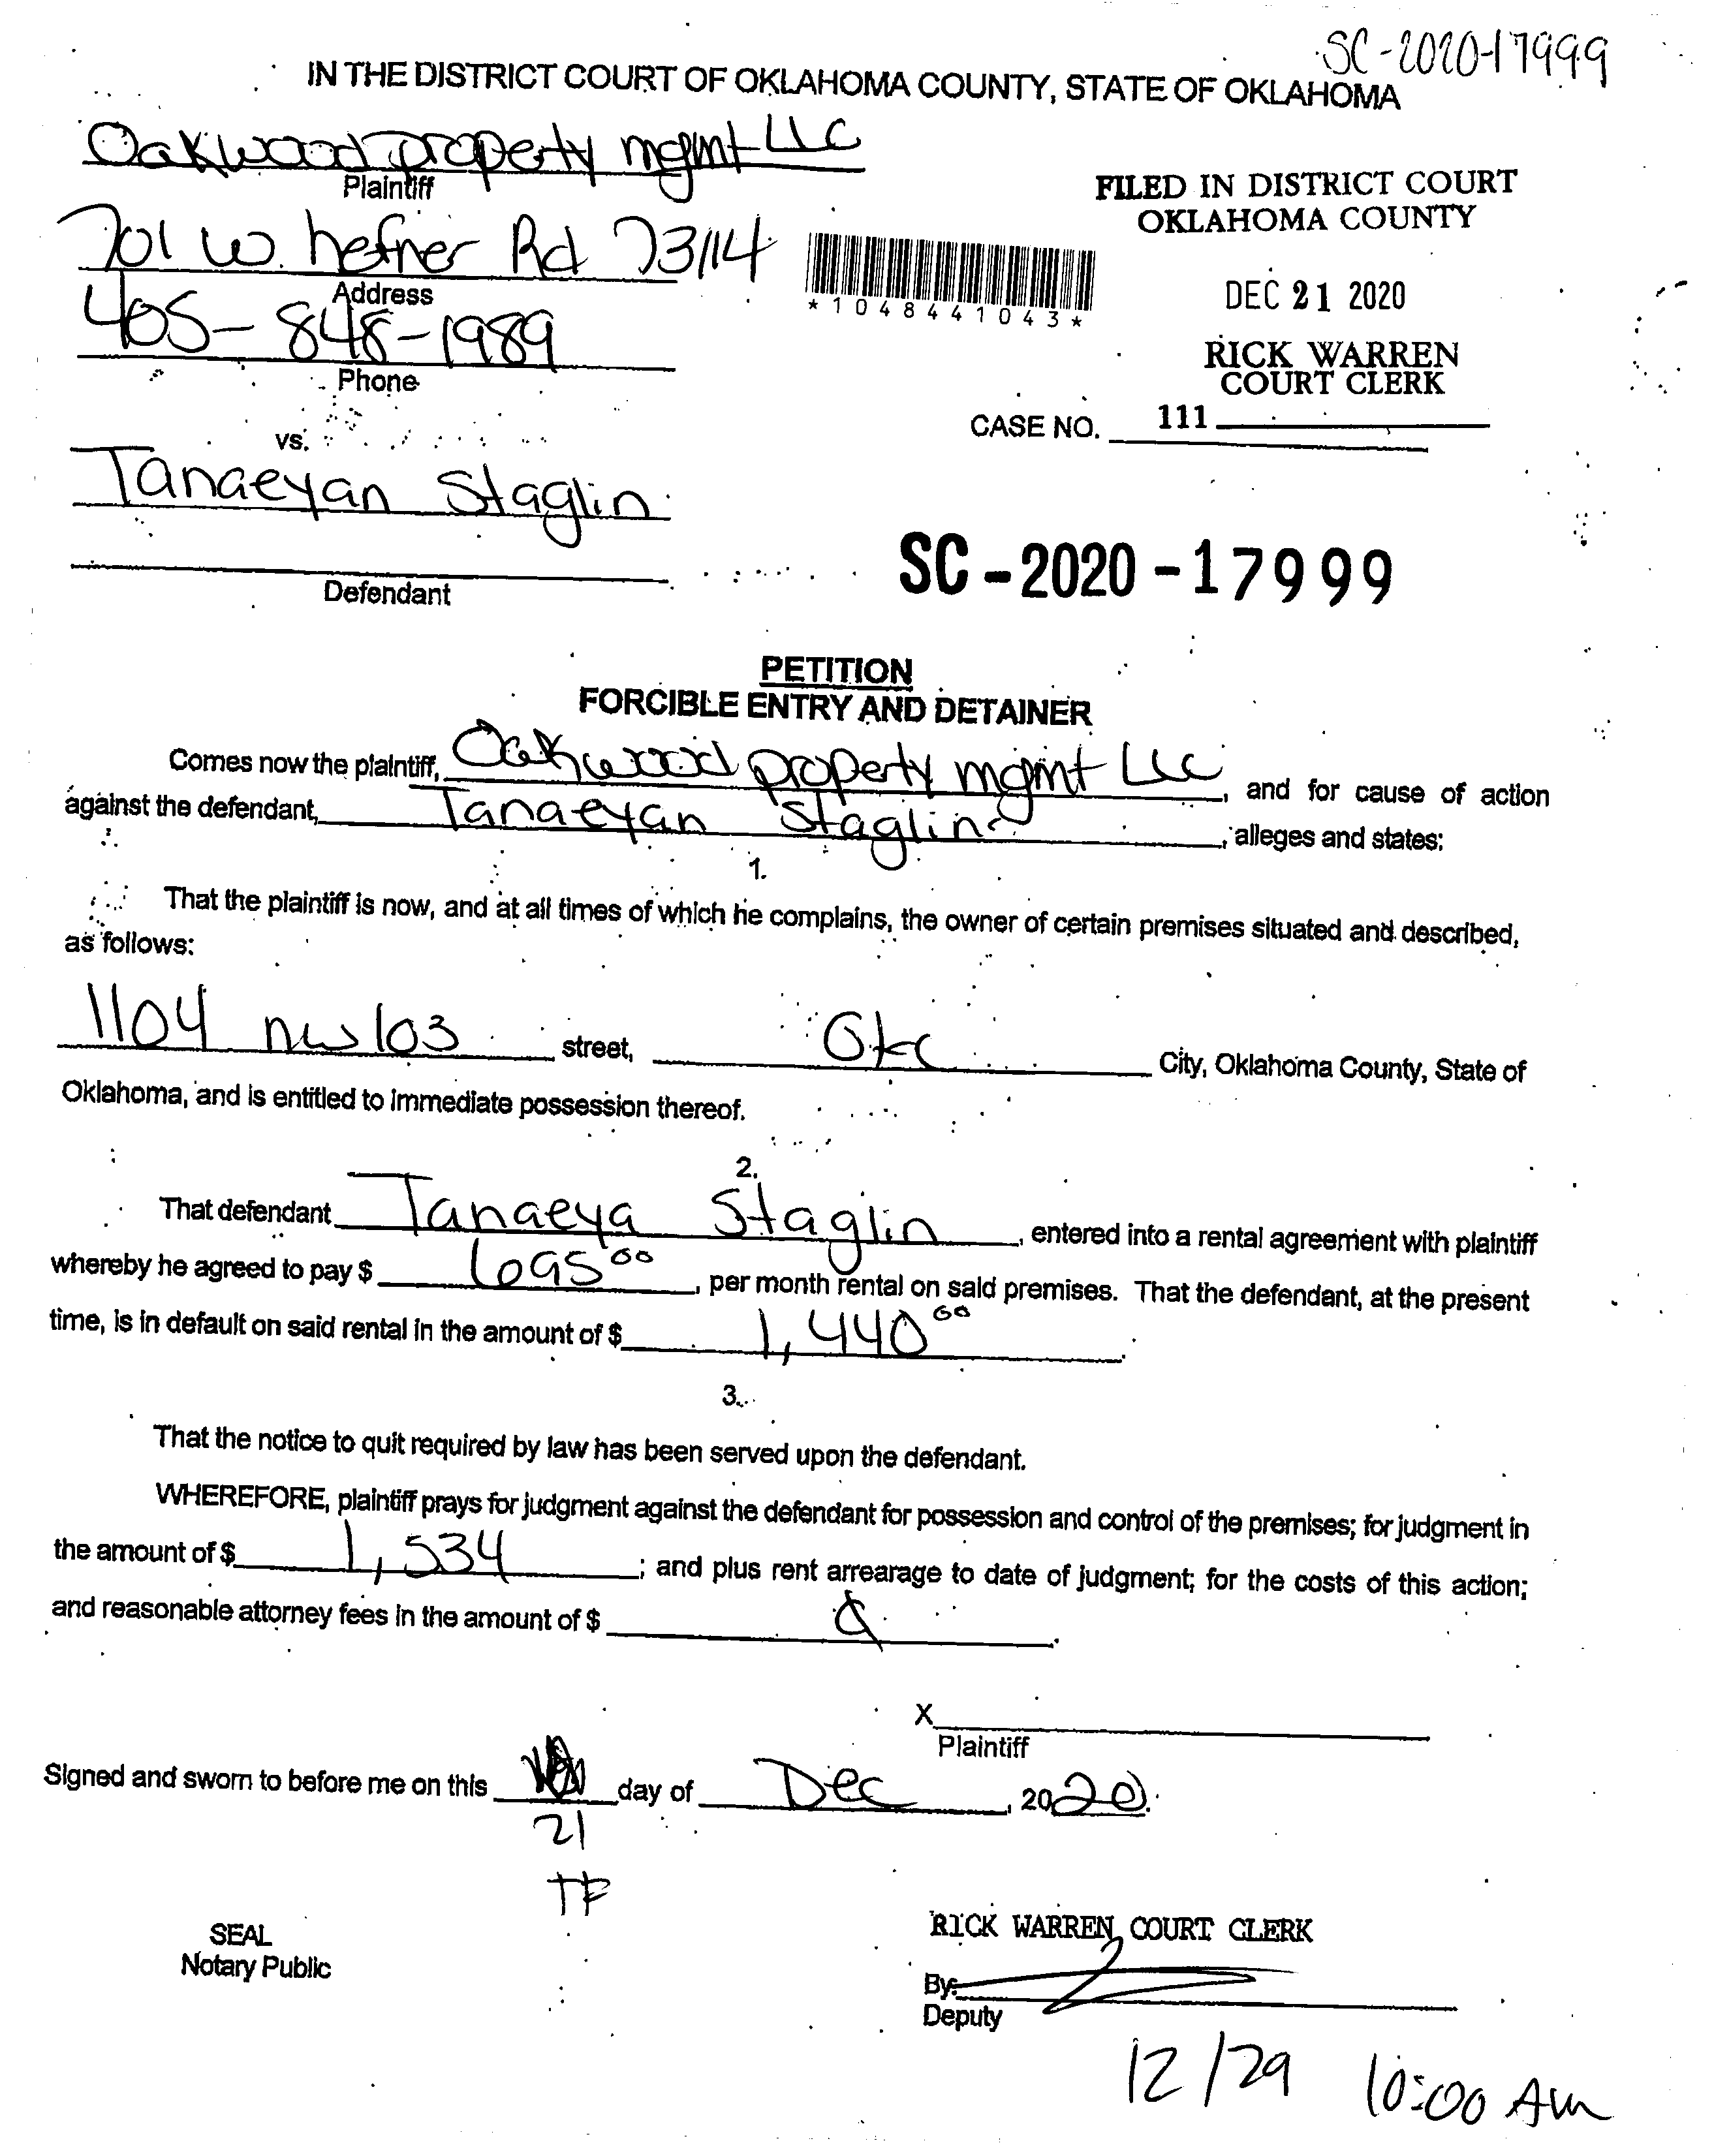 SC-2020-17999
IN THE DISTRICT COURT OF OKLAHOMA COUNTY, STATE OF OKLAHOMA
Oakwood property mgmt LLC
Plaintiff
FILED IN DISTRICT COURT
OKLAHOMA COUNTY
701 W. hefner Rd 73114
Address
*1048441043*
DEC 21 2020
405-848-1989
Phone
RICK WARREN
COURT CLERK
CASE NO. 111
vs.
Tanaeyan Staglin
Defendant
SC-2020-17999
PETITION
FORCIBLE ENTRY AND DETAINER
Comes now the plaintiff, Oakwood property mgmt LLC, and for cause of action
against the defendant, Tanaeyan Staglin, alleges and states:
1.
That the plaintiff is now, and at all times of which he complains, the owner of certain premises situated and described,
as follows:
1104 nw 103 street, Okc City, Oklahoma County, State of
Oklahoma, and is entitled to immediate possession thereof.
2.
That defendant Tanaeya Staglin, entered into a rental agreement with plaintiff
whereby he agreed to pay $ 695 00, per month rental on said premises. That the defendant, at the present
time, is in default on said rental in the amount of $ 1,440 00.
3.
That the notice to quit required by law has been served upon the defendant.
WHEREFORE, plaintiff prays for judgment against the defendant for possession and control of the premises; for judgment in
the amount of $ 1,534; and plus rent arrearage to date of judgment; for the costs of this action;
and reasonable attorney fees in the amount of $
X
Plaintiff
Signed and sworn to before me on this day of Dec, 2020.
21
TF
SEAL
Notary Public
RICK WARREN, COURT CLERK
By:
Deputy
12/29 10:00 Am